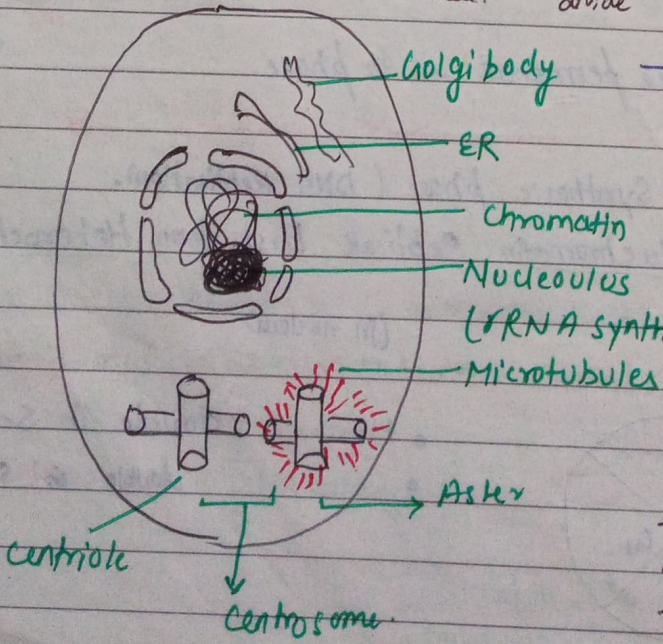 divide
Golgibody
ER
Chromatin
Nucleoulus
(rRNA synth
Microtubules
Aster
Centriole
Centrosome.